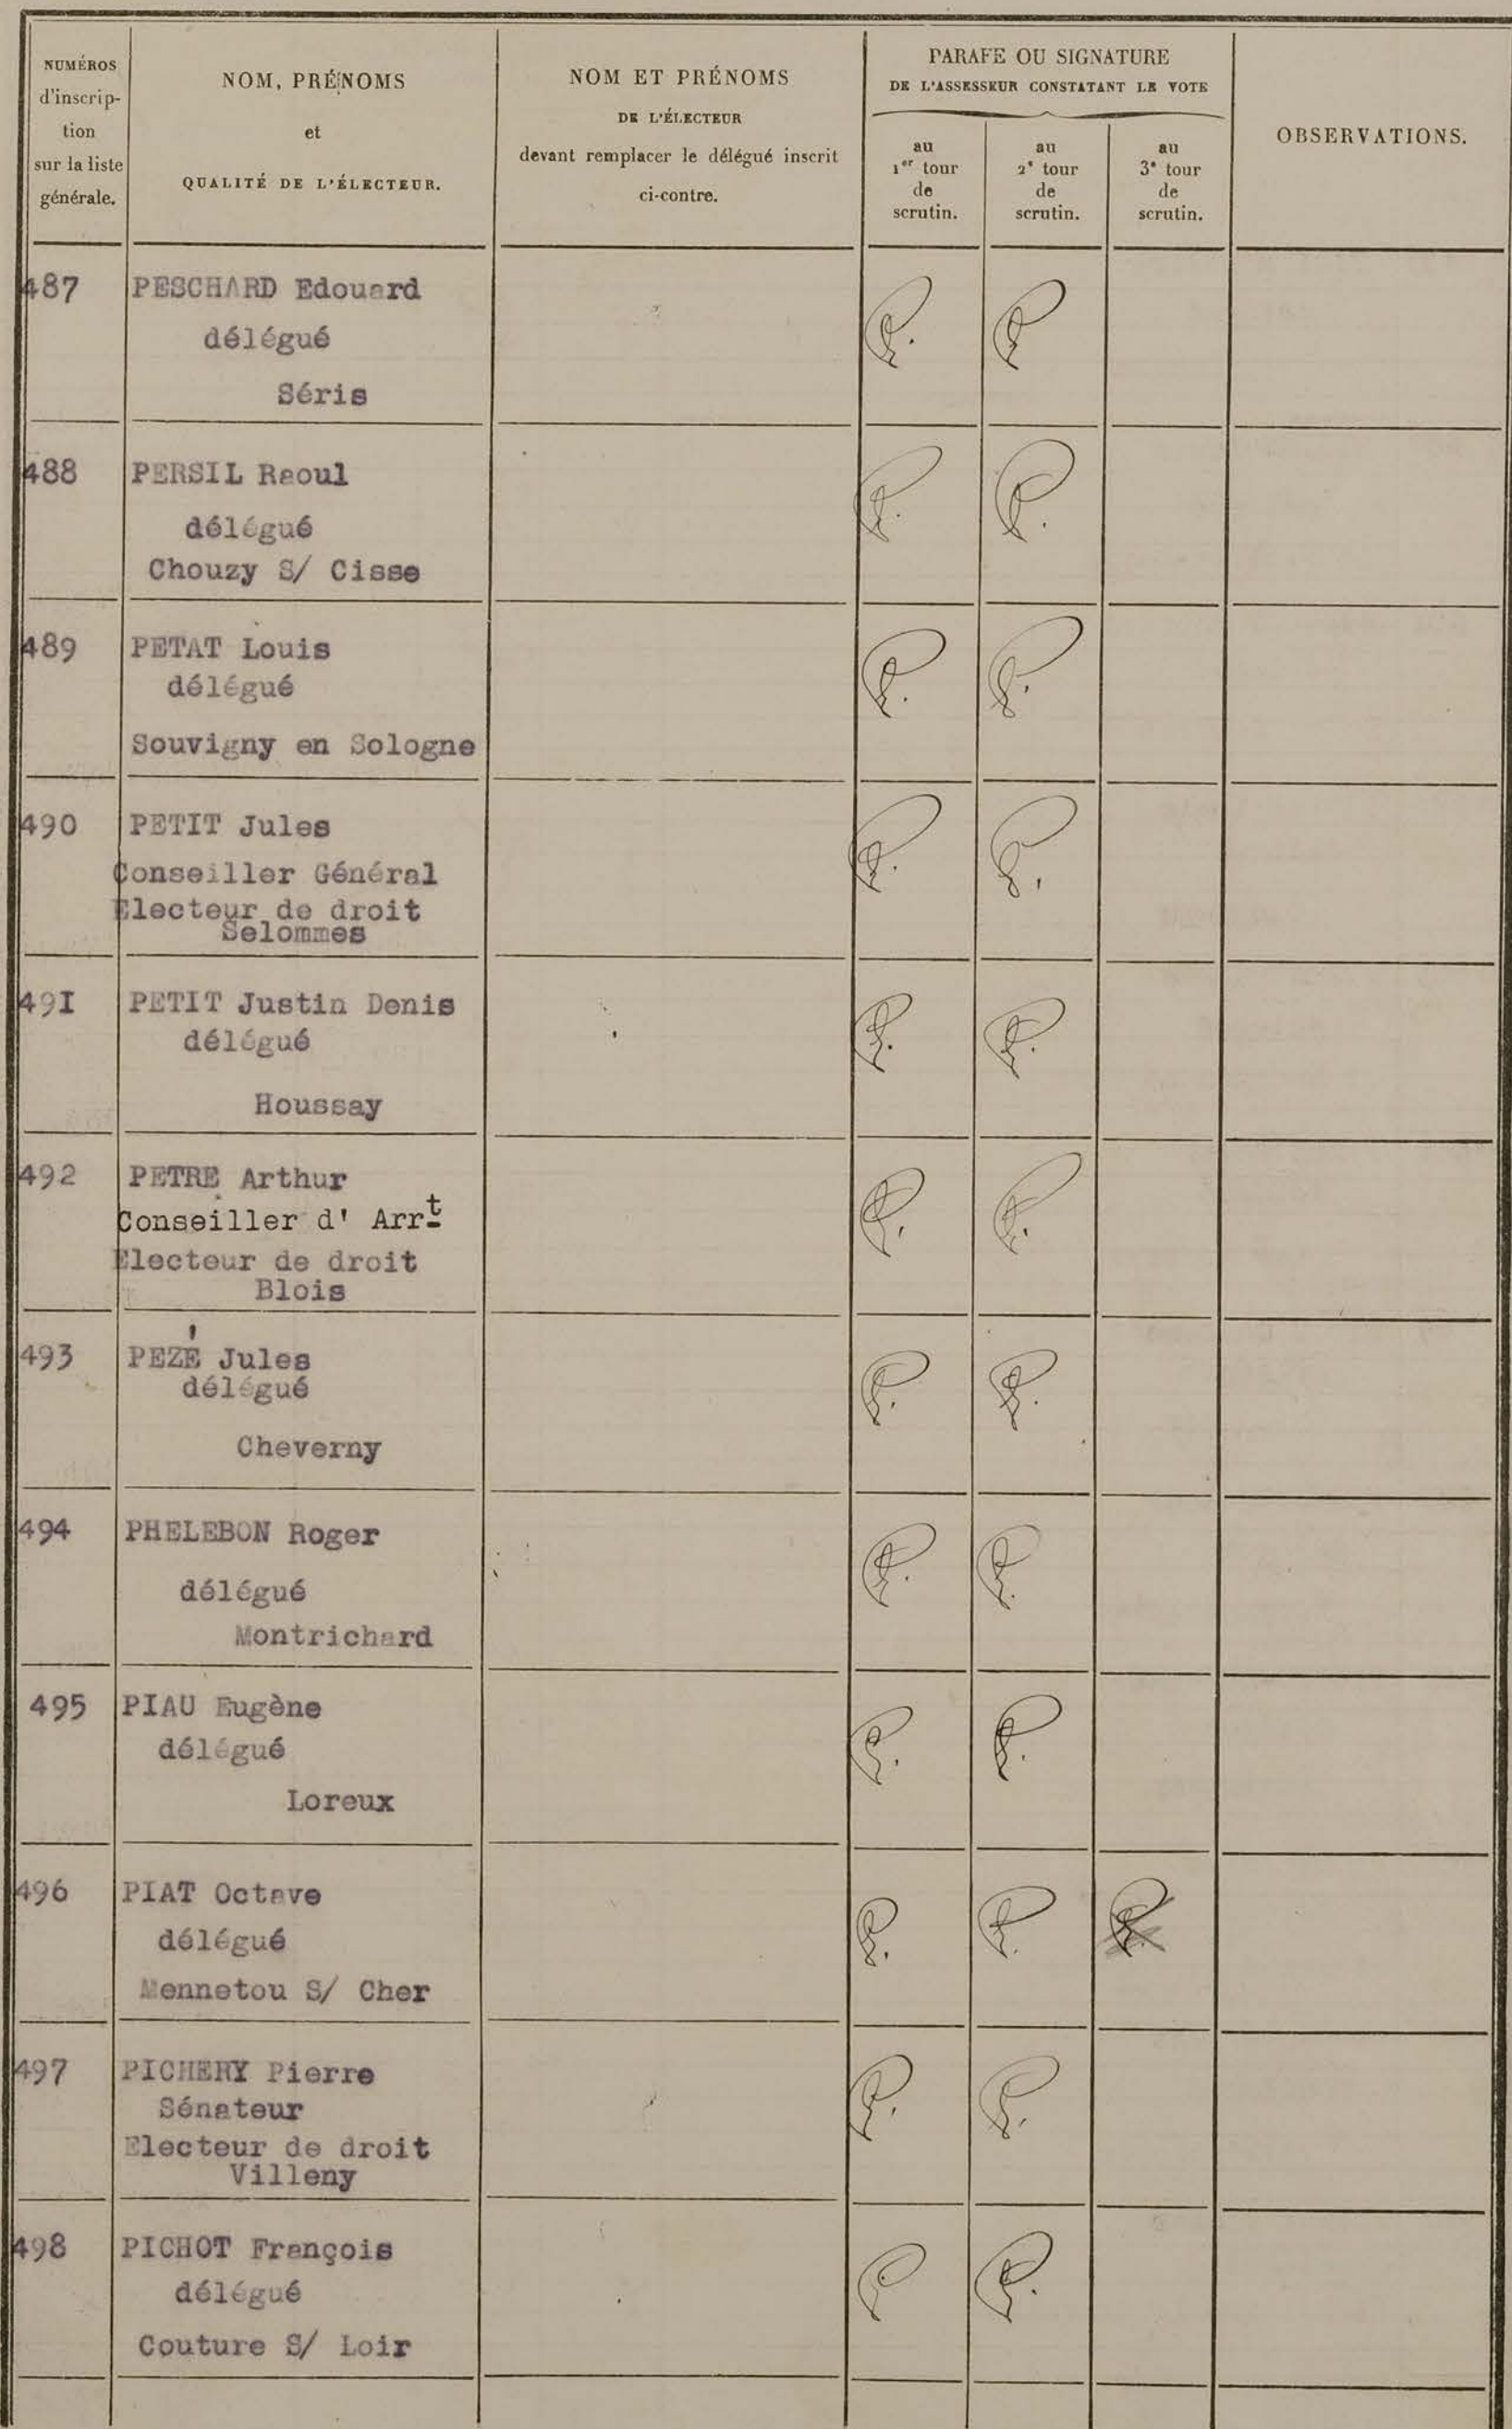 NUMÉROS
d'inscrip-
tion
sur la liste
générale.
NOM, PRÉNOMS
et
QUALITÉ DE L'ÉLECTEUR.
NOM ET PRÉNOMS
DE L'ÉLECTEUR
devant remplacer le délégué inscrit
ci-contre.
PARAFE OU SIGNATURE
DE L'ASSESSEUR CONSTATANT LE VOTE
au
1er tour
de
scrutin.
au
2e tour
de
scrutin.
au
3e tour
de
scrutin.
OBSERVATIONS.
487 PESCHARD Edouard
délégué
Séris
488 PERSIL Raoul
délégué
Chouzy S/ Cisse
489 PETAT Louis
délégué
Souvigny en Sologne
490 PETIT Jules
Conseiller Général
Electeur de droit
Selommes
49I PETIT Justin Denis
délégué
Houssay
492 PETRE Arthur
Conseiller d' Arrt
Electeur de droit
Blois
493 PEZÉ Jules
délégué
Cheverny
494 PHELEBON Roger
délégué
Montrichard
495 PIAU Eugène
délégué
Loreux
496 PIAT Octave
délégué
Mennetou S/ Cher
497 PICHERY Pierre
Sénateur
Electeur de droit
Villeny
498 PICHOT François
délégué
Couture S/ Loir